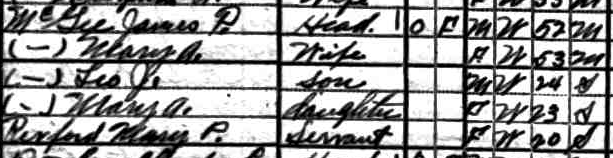 McGee James P. Head 1 O F M W 52 M
(—) Mary A. Wife F W 53 M
(—) Leo J. Son M W 24 S
(—) Mary A. daughter F W 23 S
Rexford Mary P. Servant F W 20 S